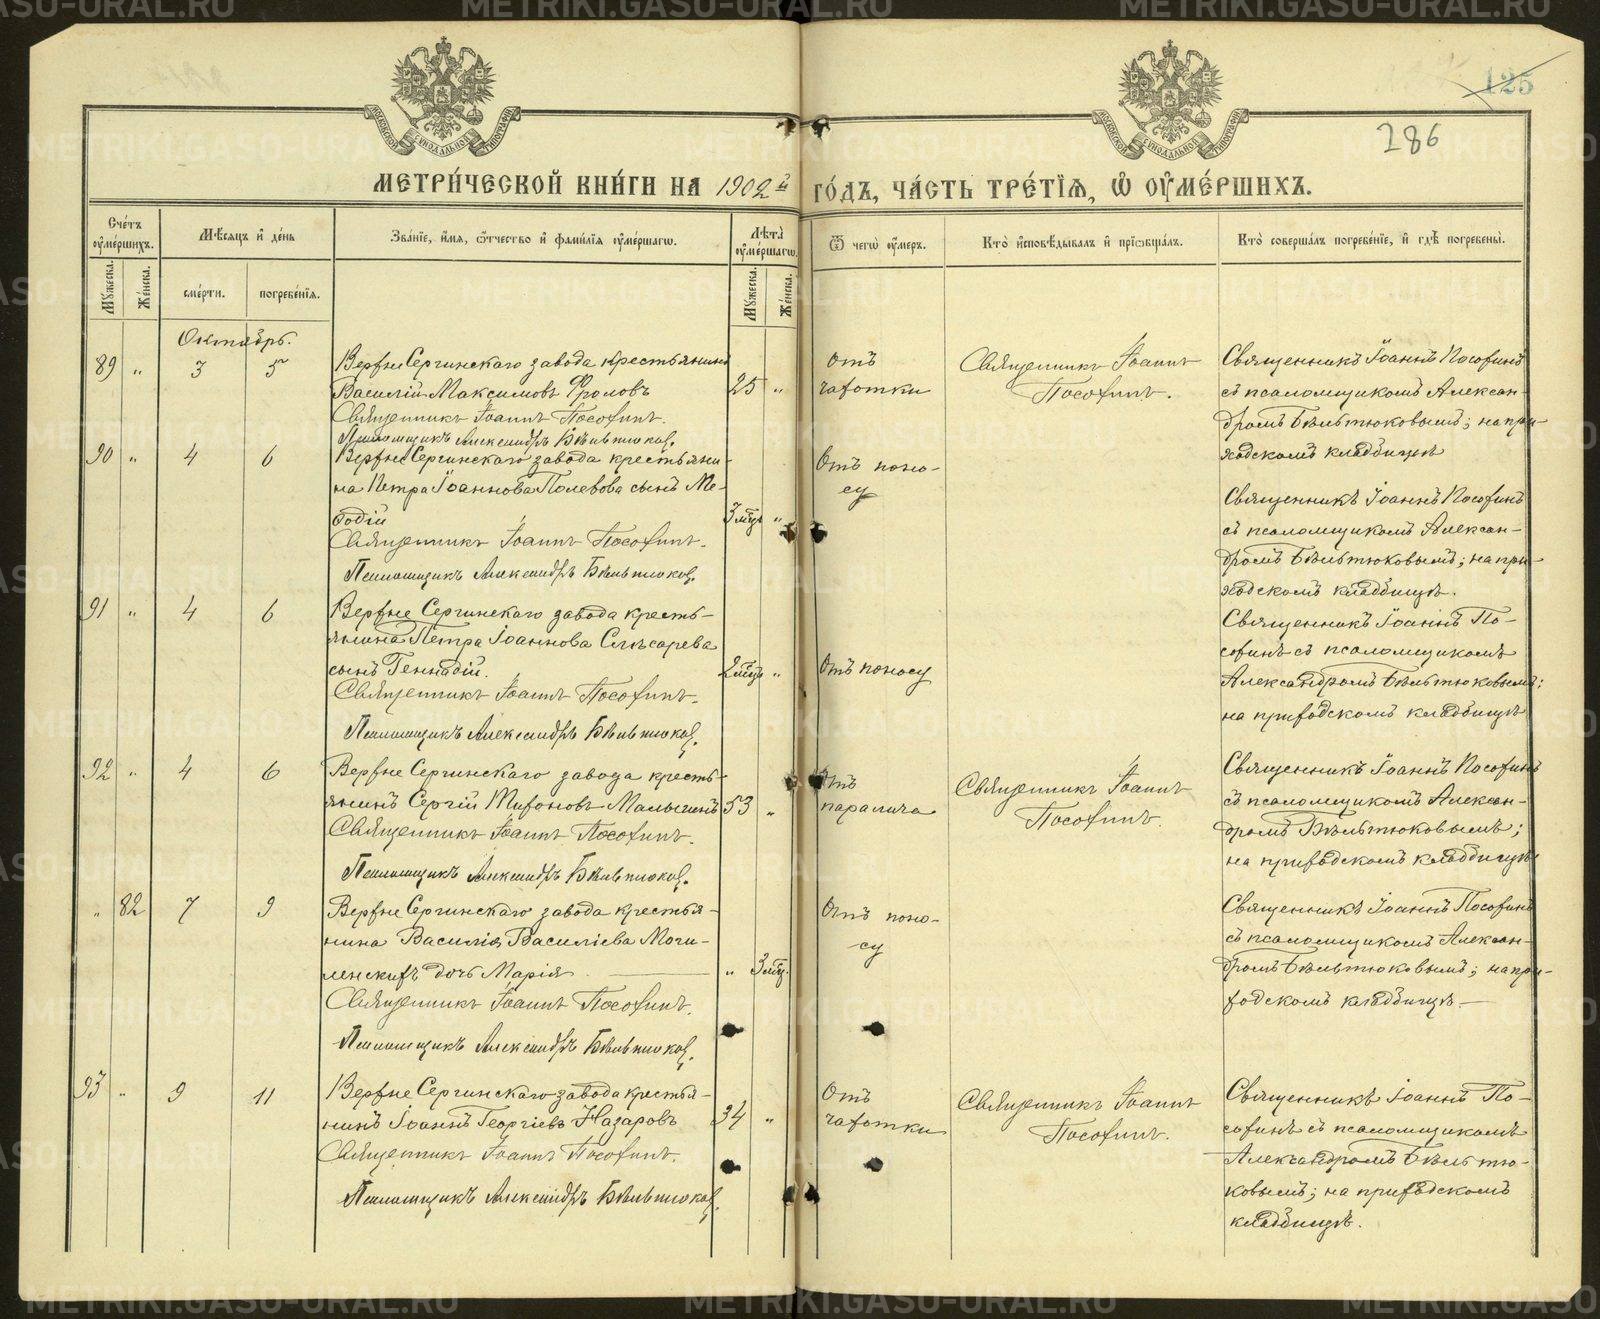 125
286
МОСКОВСКОЙ СѴНОДАЛЬНОЙ ТИПОГРАФІИ
МОСКОВСКОЙ СѴНОДАЛЬНОЙ ТИПОГРАФІИ
МЕТРИ́ЧЕСКОЙ КНИ́ГИ НА 1902й ГО́ДЪ, ЧА́СТЬ ТРЕ́ТІѦ, Ѽ ОУМЕ́РШИХЪ.
Сче́тъ оуме́ршихъ.
Мѣ́сяцъ и де́нь
Зва́нїе, и́мѧ, ѻ҆́тчество и фами́лїѧ оуме́ршагѡ.
Лѣ̑та оуме́ршагѡ.
Ѿ чегѡ̀ оу́меръ.
Кто̀ и҆сповѣ́дывалъ и҆ прїѡбща́лъ.
Кто̀ соверша́лъ погребе́нїе, и҆ гдѣ̀ погребены̀.
Мꙋ́жеска.
Же́нска.
сме́рти.
погребе́нїѧ.
Мꙋ́жеска.
Же́нска.
Октябрь.
89 „ 3 5
Верхне Сергинскаго завода крестьянинъ
Василій Максимовъ Фроловъ
25 „
Священникъ Іоаннъ Пософинъ.
Псаломщикъ Александръ Бѣльтюковъ.
отъ
чахотки
Священникъ Іоаннъ
Пософинъ.
Священникъ Іоаннъ Пософинъ
съ псаломщикомъ Алексан-
дромъ Бѣльтюковымъ; на при-
ходскомъ кладбищѣ
90 „ 4 6
Верхне Сергинскаго завода крестьяни-
на Петра Іоаннова Полевова сынъ Ме-
ѳодій
3 мѣц „
Священникъ Іоаннъ Пософинъ.
Псаломщикъ Александръ Бѣльтюковъ.
Отъ поно-
су
Священникъ Іоаннъ Пософинъ
съ псаломщикомъ Алексан-
дромъ Бѣльтюковымъ; на при-
ходскомъ кладбищѣ.
91 „ 4 6
Верхне Сергинскаго завода кресть-
янина Петра Іоаннова Слѣсарева
сынъ Геннадій.
2 мѣц „
Священникъ Іоаннъ Пософинъ.
Псаломщикъ Александръ Бѣльтюковъ.
Отъ поносу
Священникъ Іоаннъ По-
софинъ съ псаломщикомъ
Александромъ Бѣльтюковымъ;
на приходскомъ кладбищѣ
92 „ 4 6
Верхне Сергинскаго завода кресть-
янинъ Сергій Малыгинъ
53 „
Священникъ Іоаннъ Пософинъ.
Псаломщикъ Александръ Бѣльтюковъ.
Отъ
паралича
Священникъ Іоаннъ
Пософинъ.
Священникъ Іоаннъ Пософинъ
съ псаломщикомъ Алексан-
дромъ Бѣльтюковымъ;
на приходскомъ кладбищѣ
„ 82 7 9
Верхне Сергинскаго завода крестья-
нина Василія Василіева Моги-
ленскихъ дочь Марія
„ 3 мѣц.
Священникъ Іоаннъ Пософинъ.
Псаломщикъ Александръ Бѣльтюковъ.
Отъ поно-
су
Священникъ Іоаннъ Пософинъ
съ псаломщикомъ Алексан-
дромъ Бѣльтюковымъ; на при-
ходскомъ кладбищѣ.
93 „ 9 11
Верхне Сергинскаго завода крестья-
нинъ Іоаннъ Георгіевъ Назаровъ
34 „
Священникъ Іоаннъ Пософинъ.
Псаломщикъ Александръ Бѣльтюковъ.
Отъ
чахотки
Священникъ Іоаннъ
Пософинъ.
Священникъ Іоаннъ По-
софинъ съ псаломщикомъ
Александромъ Бѣльтю-
ковымъ; на приходскомъ
кладбищѣ.
METRIKI.GASO-URAL.RU